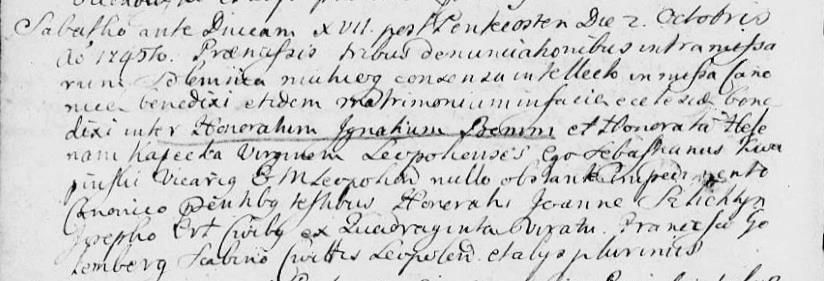 Sabatho ante Dnicam XVII. post Pentecosten Die 2. Octobris
Ao 1745to. Præmissis tribus denunciationibus intra missa
rum solemnia mutuoq consensu intellecto in missa Cano
nice benedixi etidem matrimonium in facie ecclesiæ bene
dixi inter Honoratum Ignatium et Honoratā Hele
nam Virginem Leopolienses Ego Sebastianus
Vicariq E M Leopolien nullo obstante impedimento
Canonico Pñtibq testibus Honoratis Joanne Szlichtyn
Josepho Ert Civibq ex Quadraginta Viratu. Francisco Go
lemberq Scabino Civittis Leopolien et alys plurimis